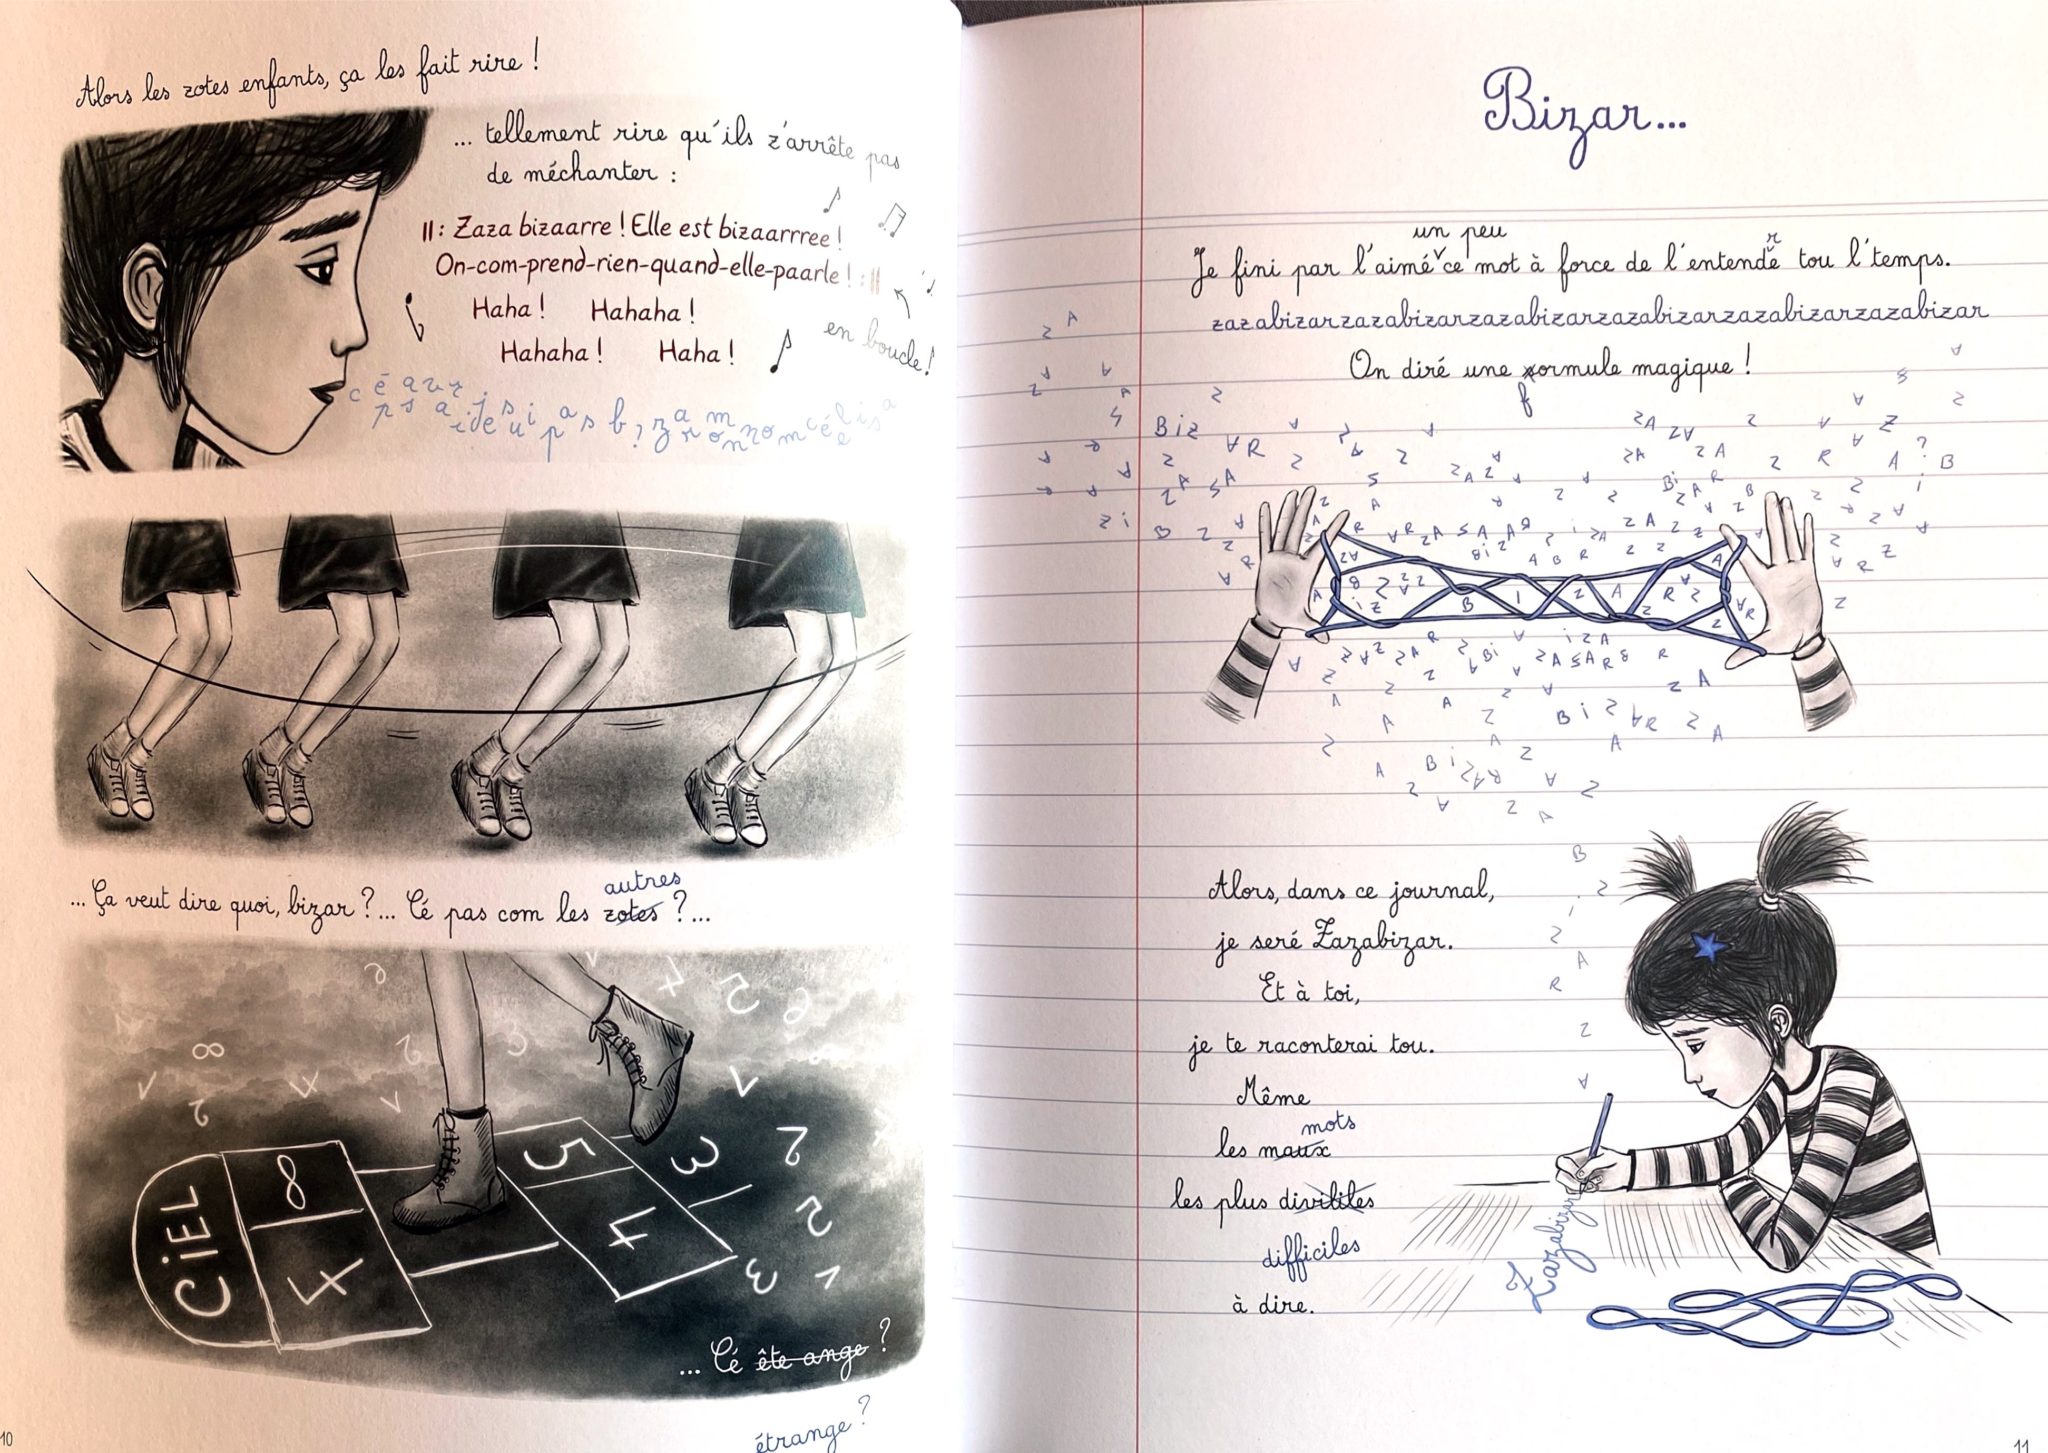 Alors les zotes enfants, ça les fait rire !
... tellement rire qu'ils z'arrête pas
de méchanter :
||: Zaza bizaarre ! Elle est bizaarrree !
On-com-prend-rien-quand-elle-paarle ! :||
Haha ! Hahaha !
en boucle !
Hahaha ! Haha !
... Ça veut dire quoi, bizar ?... Cé pas com les zotes ?...
autres
8
2
CiEL
8
7
5
4
3
2
2
3
1
... Cé ête ange ?
étrange ?
10
Bizar...
un peu
Je fini par l'aimé ce mot à force de l'entendre tou l'temps.
zazabizarzazabizarzazabizarzazabizarzazabizarzazabizar
On diré une formule magique !
f
BiZ
B I Z A R
Alors, dans ce journal,
je seré Zazabizar.
Et à toi,
je te raconterai tou.
Même
mots
les maux
les plus divililes
difficiles
à dire.
Zazabizar
11